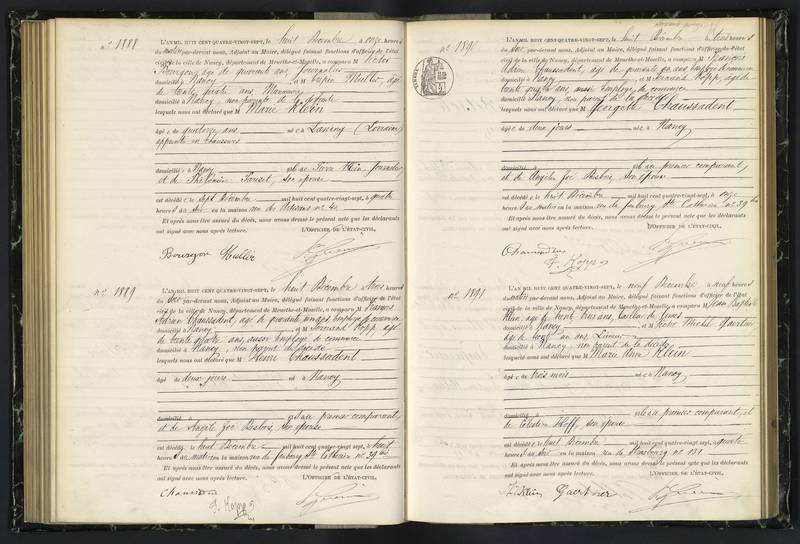 n° 1888
L'AN MIL HUIT CENT QUATRE-VINGT-SEPT, le huit Décembre à onze heures
du matin par-devant nous, Adjoint au Maire, délégué faisant fonctions d'officier de l'état
civil de la ville de Nancy, département de Meurthe-et-Moselle, a comparu M Victor
Bourgong âgé de quarante ans, journalier
domicilié à Nancy et M Crépin Muller, âgé
de trente quatre ans, Manœuvre
domicilié à Nancy, non parents de la défunte
lesquels nous ont déclaré que M Marie Klein
âgée de quatorze ans née à (Lorraine)
domiciliée à Nancy est Pierre Klein, journalier
et de son épouse
est décédée le sept Décembre mil huit cent quatre-vingt-sept, à quatre
heures du soir en la maison rue des Artisans n° 40
Et après nous être assuré du décès, nous avons dressé le présent acte que les déclarants
ont signé avec nous après lecture. L'OFFICIER DE L'ÉTAT-CIVIL,
Muller
n° 1889
L'AN MIL HUIT CENT QUATRE-VINGT-SEPT, le huit Décembre à trois heures
du soir par-devant nous, Adjoint au Maire, délégué faisant fonctions d'officier de l'état
civil de la ville de Nancy, département de Meurthe-et-Moselle, a comparu M François
Adrien Chaussadent, âgé de quarante ans, employé de commerce
domicilié à Nancy et M Fernand Kopp, âgé
de trente quatre ans, aussi employé de commerce
domicilié à Nancy, non parent du décédé
lesquels nous ont déclaré que M Henri Chaussadent
âgé de deux jours né à Nancy
domicilié à est au premier comparant,
et de Angèle son épouse
est décédé le huit Décembre mil huit cent quatre-vingt-sept, à huit
heures du matin en la maison rue du faubourg Ste Catherine n° 39 bis
Et après nous être assuré du décès, nous avons dressé le présent acte que les déclarants
ont signé avec nous après lecture. L'OFFICIER DE L'ÉTAT-CIVIL,
F. Kopp
n° 1890
L'AN MIL HUIT CENT QUATRE-VINGT-SEPT, le huit Décembre à trois heures
du soir par-devant nous, Adjoint au Maire, délégué faisant fonctions d'officier de l'état
civil de la ville de Nancy, département de Meurthe-et-Moselle, a comparu M François
Adrien Chaussadent, âgé de quarante ans, employé de commerce
domicilié à Nancy et M Fernand Kopp, âgé de
trente quatre ans, aussi employé de commerce
domicilié à Nancy, non parent de la décédée
lesquels nous ont déclaré que M Georgette Chaussadent
âgée de deux jours née à Nancy
domicilié à est au premier comparant,
et de Angèle son épouse
est décédée le huit Décembre mil huit cent quatre-vingt-sept, à onze
heures du matin en la maison rue du faubourg Ste Catherine n° 39 bis
Et après nous être assuré du décès, nous avons dressé le présent acte que les déclarants
ont signé avec nous après lecture. L'OFFICIER DE L'ÉTAT-CIVIL,
F. Kopp
n° 1891
L'AN MIL HUIT CENT QUATRE-VINGT-SEPT, le neuf Décembre à neuf heures
du matin par-devant nous, Adjoint au Maire, délégué faisant fonctions d'officier de l'état
civil de la ville de Nancy, département de Meurthe-et-Moselle, a comparu M Jean Baptiste
Klein, âgé de trente trois ans, tailleur de limes
domicilié à Nancy et M Victor Michel Gaertner
âgé de trente un ans, Limeur
domicilié à Nancy, non parent de la décédée
lesquels nous ont déclaré que M Marie Anne Klein
âgée de trois mois née à Nancy
domicilié à est au premier comparant, et
de Célestine Hoff, son épouse
est décédée le huit Décembre mil huit cent quatre-vingt-sept, à quatre
heures du soir en la maison rue de Strasbourg n° 131
Et après nous être assuré du décès, nous avons dressé le présent acte que les déclarants
ont signé avec nous après lecture. L'OFFICIER DE L'ÉTAT-CIVIL,
Klein Gaertner